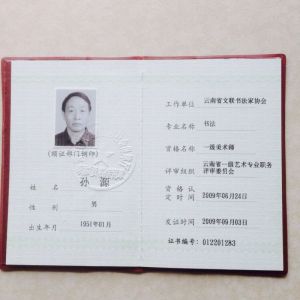 (颁证部门钢印)
姓 名 孙源
性 别 男
出生年月 1951年01月
工作单位 云南省文联书法家协会
专业名称 书法
资格名称 一级美术师
评审组织 云南省一级艺术专业职务
评审委员会
资格认
定时间 2009年06月24日
发证时间 2009年09月03日
证书编号: 012201283